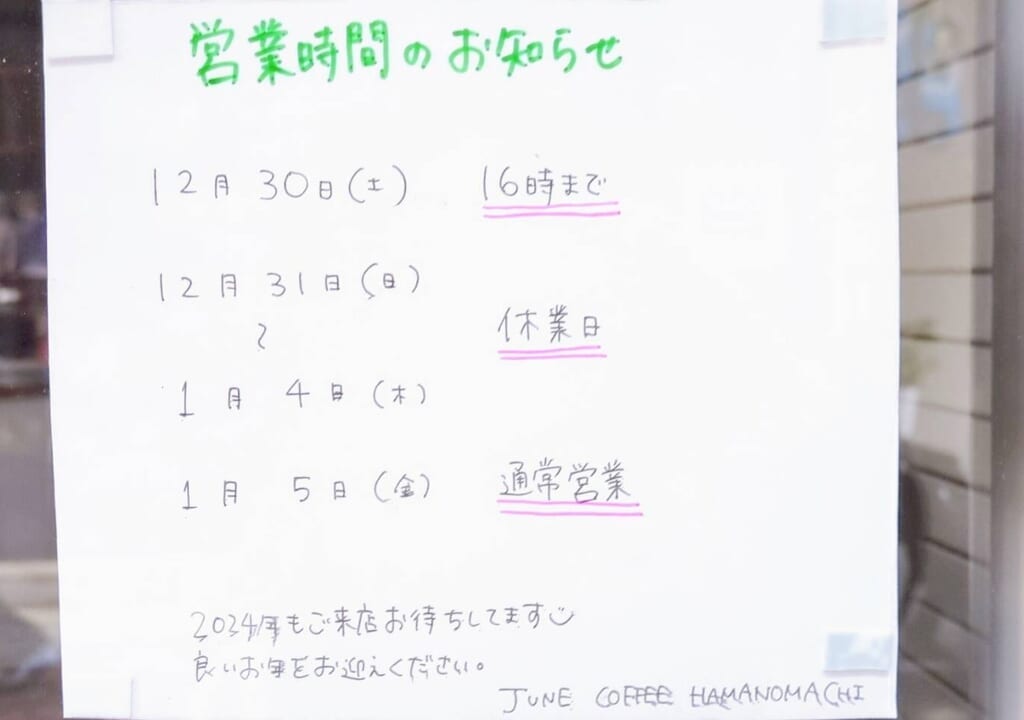 営業時間のお知らせ
12月 30日(土) 16時まで
12月 31日(日)
〜 休業日
1月 4日(木)
1月 5日(金) 通常営業
2024年もご来店お待ちしてます
良いお年をお迎えください。
JUNE COFFEE HAMANOMACHI